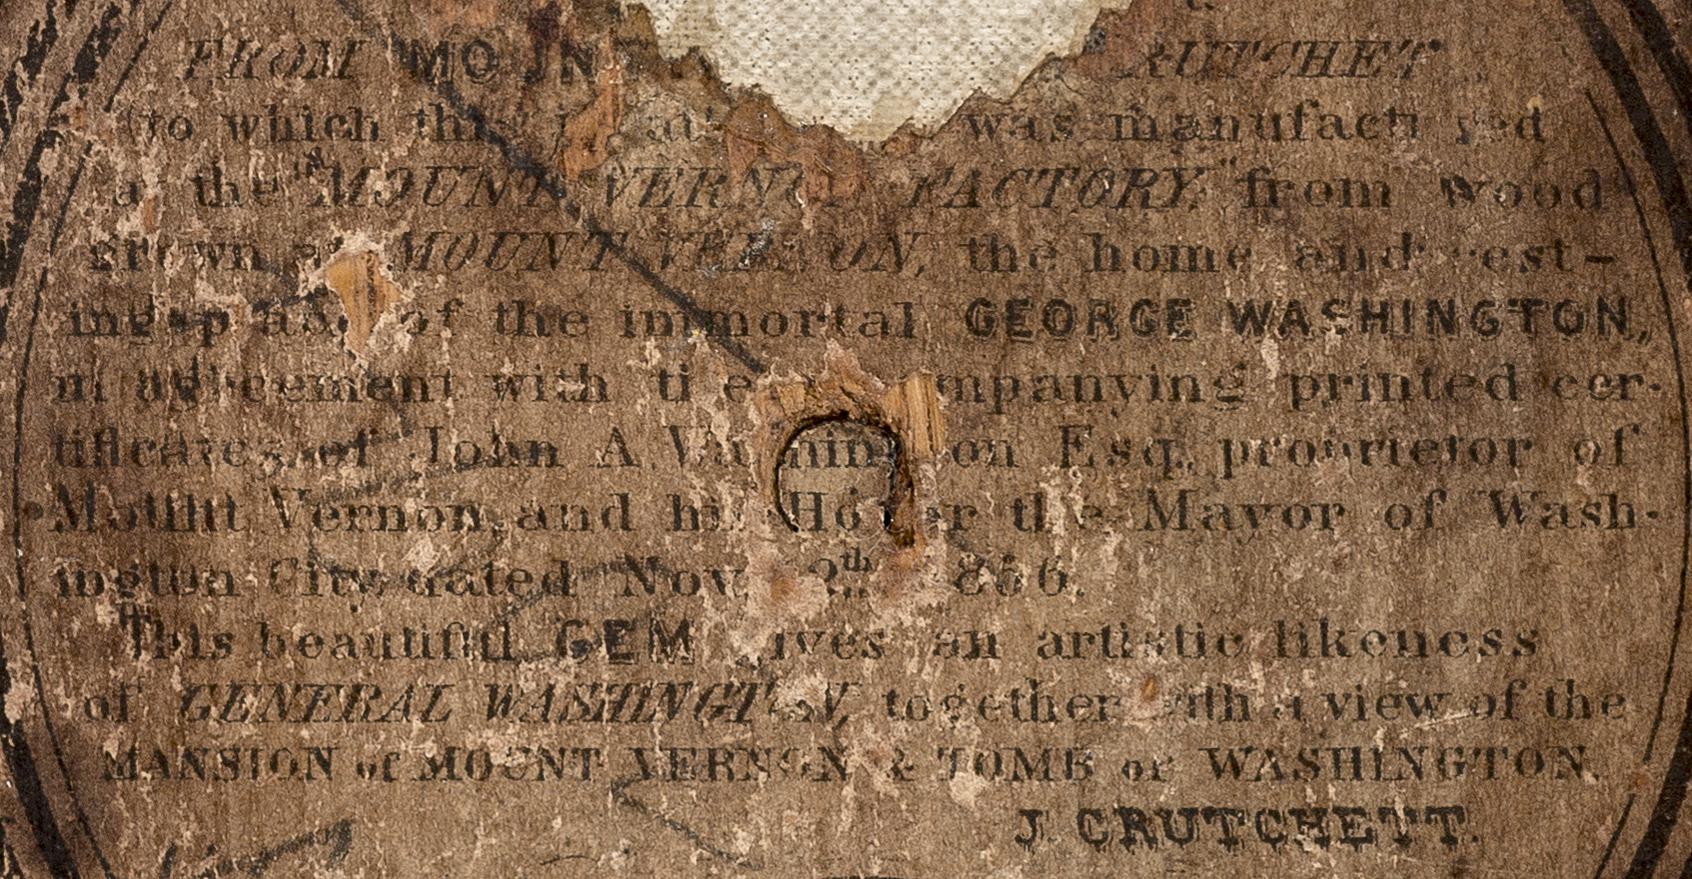 FROM MOUNT CRUTCHET
to which this was manufactured
at the "MOUNT VERNON FACTORY," from wood
grown at MOUNT VERNON, the home and rest-
ing place of the immortal GEORGE WASHINGTON,
in agreement with the accompanying printed cer-
tificates of John A. Washington Esq. proprietor of
Mount Vernon and his Honor the Mayor of Wash-
ington City dated Nov. 1856.
This beautiful GEM gives an artistic likeness
of GENERAL WASHINGTON, together with a view of the
MANSION of MOUNT VERNON & TOMB OF WASHINGTON.
J. CRUTCHETT.